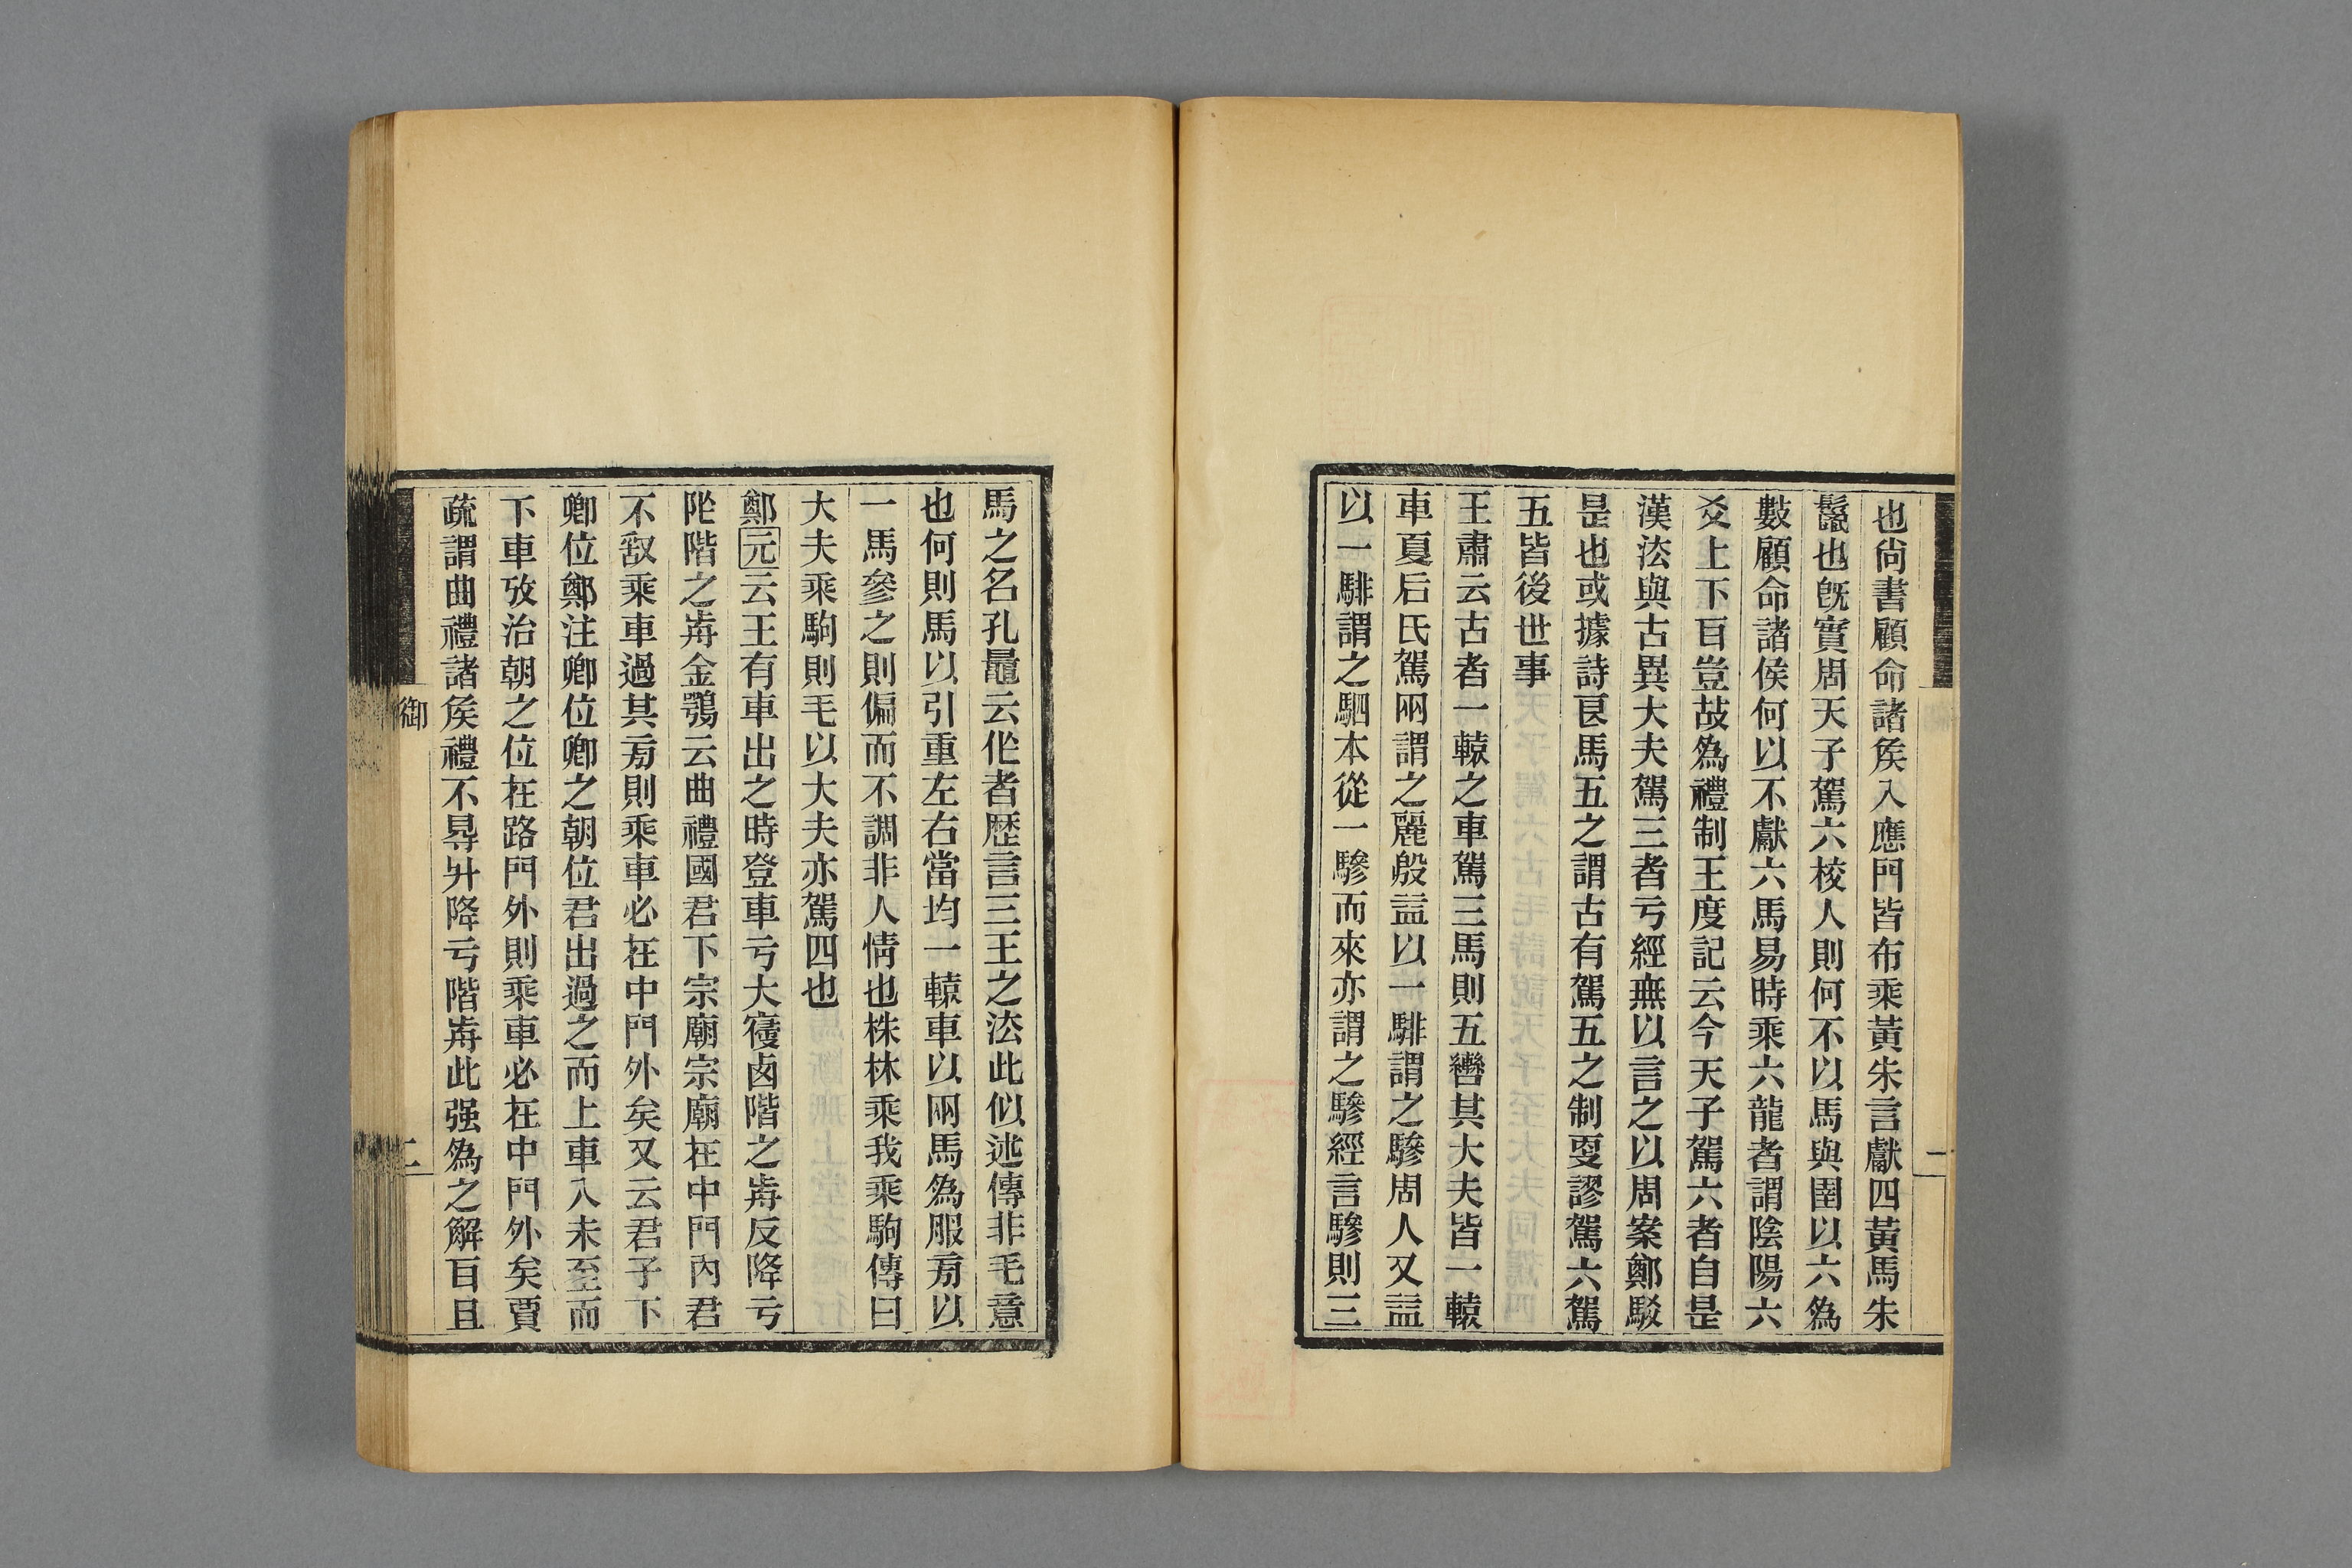 也尙書顧命諸矦入應門皆布乘黃朱言獻四黃馬朱
鬛也旣實周天子駕六校人則何不以馬與圉以六爲
數顧命諸侯何以不獻六馬易時乘六龍者謂陰陽六
爻上下百豈故爲禮制王度記云今天子駕六者自是
漢法與古異大夫駕三者亏經無以言之以周案鄭駁
是也或據詩良馬五之謂古有駕五之制㪅謬駕六駕
五皆後世事
王肅云古者一轅之車駕三馬則五轡其大夫皆一轅
車夏后氏駕兩謂之麗殷益以一騑謂之驂周人又益
以一騑謂之駟本從一驂而來亦謂之驂經言驂則三
馬之名孔鼂云作者歷言三王之法此似述傳非毛意
也何則馬以引重左右當均一轅車以兩馬爲服旁以
一馬參之則偏而不調非人情也株林乘我乘駒傳曰
大夫乘駒則毛以大夫亦駕四也
鄭元云王有車出之時登車亏大寑卤階之歬反降亏
阼階之歬金鶚云曲禮國君下宗廟宗廟在中門內君
不敢乘車過其旁則乘車必在中門外矣又云君子下
卿位鄭注卿位卿之朝位君出過之而上車入未至而
下車攷治朝之位在路門外則乘車必在中門外矣賈
疏謂曲禮諸矦禮不㝵升降亏階歬此强爲之解百且
御
二